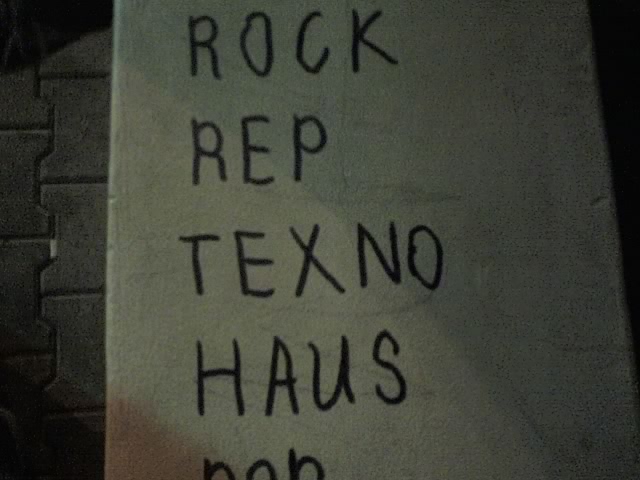 ROCK
REP
TEXNO
HAUS
pop